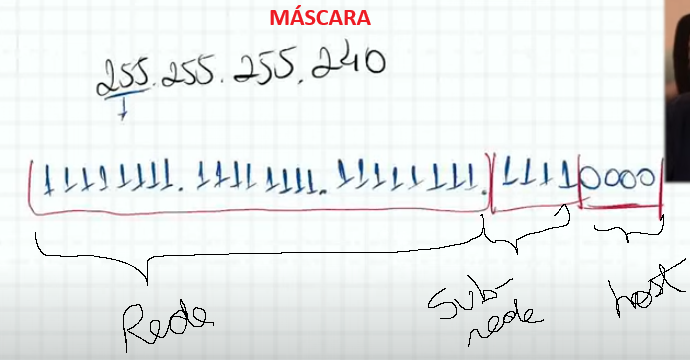 MÁSCARA
255.255.255.240
11111111.11111111.11111111.11110000
Rede
Sub-
rede
host